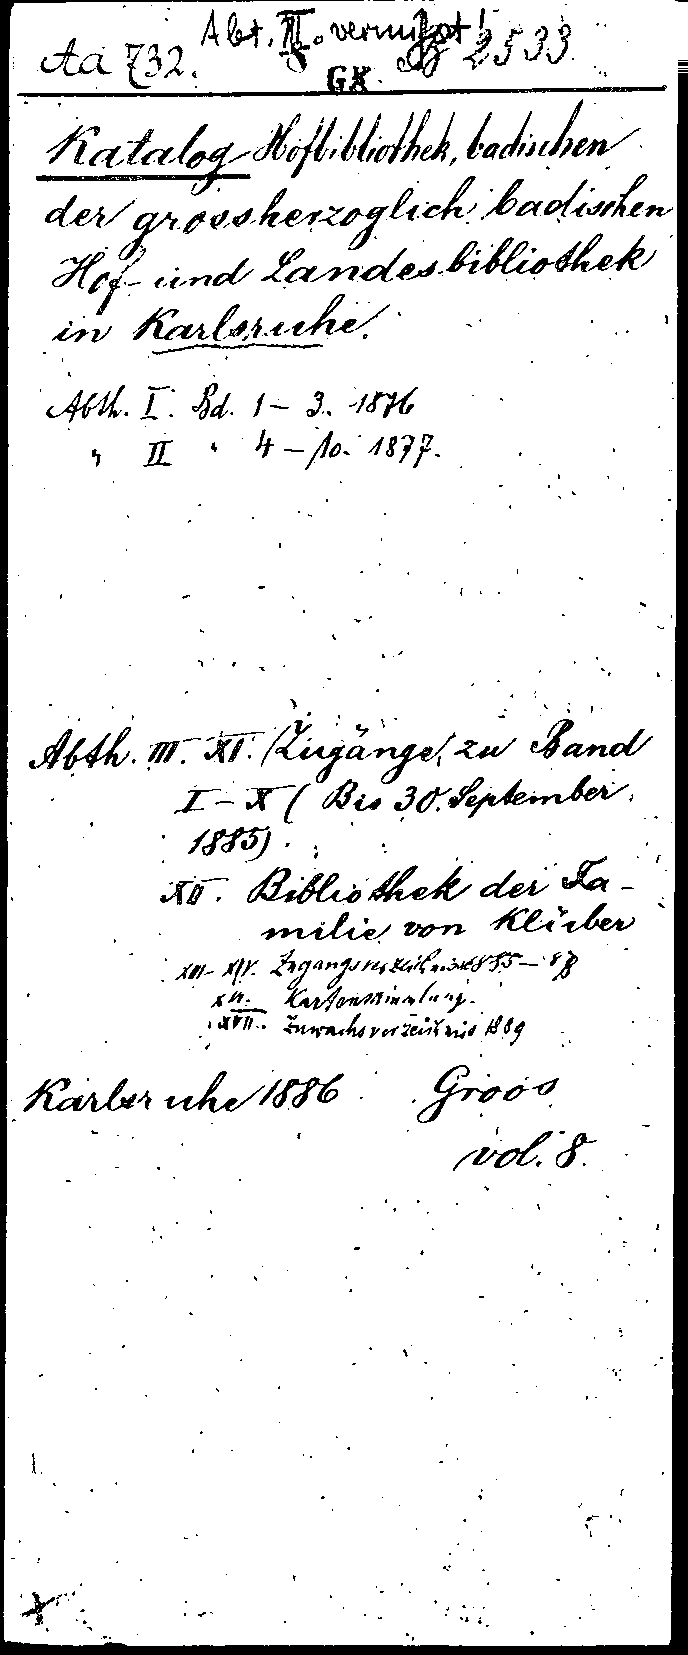 Abt. II. vermißt!
Aa 732. 2533
GK.
Katalog Hofbibliothek, badischen
der grossherzoglich badischen
Hof- und Landesbibliothek
in Karlsruhe.
Abth. I. Bd. 1 – 3. 1876
" II " 4 – 10. 1877.
Abth. III. XI. (Zugänge, zu Band
I – X ( Bis 30. September
1885).
XII. Bibliothek der Fa-
milie von Klüber
XIII- XIV. Zugangsverzeichnisse 1885 – 87
Kartensammlung.
XVII. Zuwachsverzeichnis 1889
Karlsruhe 1886 Groos
vol. 8.